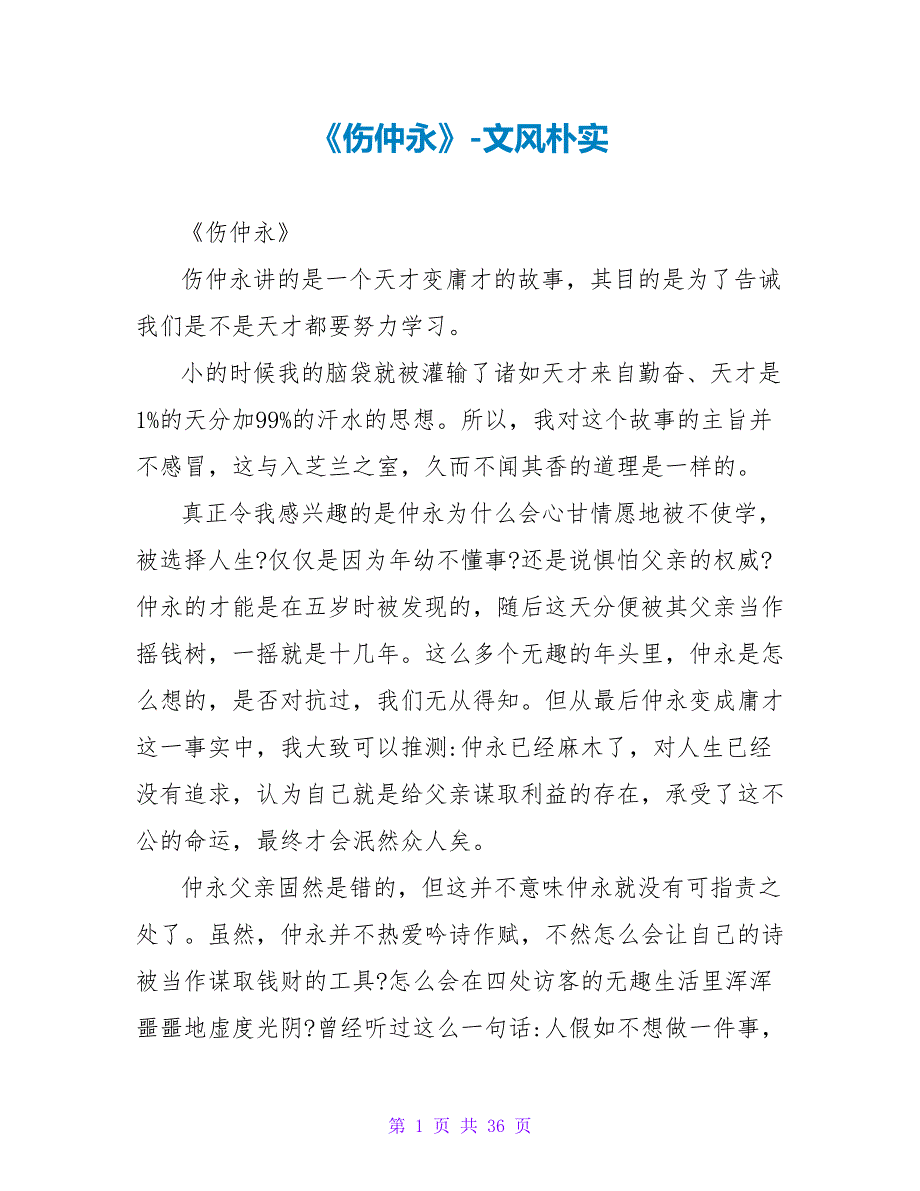 《伤仲永》-文风朴实
《伤仲永》
伤仲永讲的是一个天才变庸才的故事，其目的是为了告诫
我们是不是天才都要努力学习。
小的时候我的脑袋就被灌输了诸如天才来自勤奋、天才是
1%的天分加99%的汗水的思想。所以，我对这个故事的主旨并
不感冒，这与入芝兰之室，久而不闻其香的道理是一样的。
真正令我感兴趣的是仲永为什么会心甘情愿地被不使学，
被选择人生?仅仅是因为年幼不懂事?还是说惧怕父亲的权威?
仲永的才能是在五岁时被发现的，随后这天分便被其父亲当作
摇钱树，一摇就是十几年。这么多个无趣的年头里，仲永是怎
么想的，是否对抗过，我们无从得知。但从最后仲永变成庸才
这一事实中，我大致可以推测:仲永已经麻木了，对人生已经
没有追求，认为自己就是给父亲谋取利益的存在，承受了这不
公的命运，最终才会泯然众人矣。
仲永父亲固然是错的，但这并不意味仲永就没有可指责之
处了。虽然，仲永并不热爱吟诗作赋，不然怎么会让自己的诗
被当作谋取钱财的工具?怎么会在四处访客的无趣生活里浑浑
噩噩地虚度光阴?曾经听过这么一句话:人假如不想做一件事，
第 1 页 共 36 页